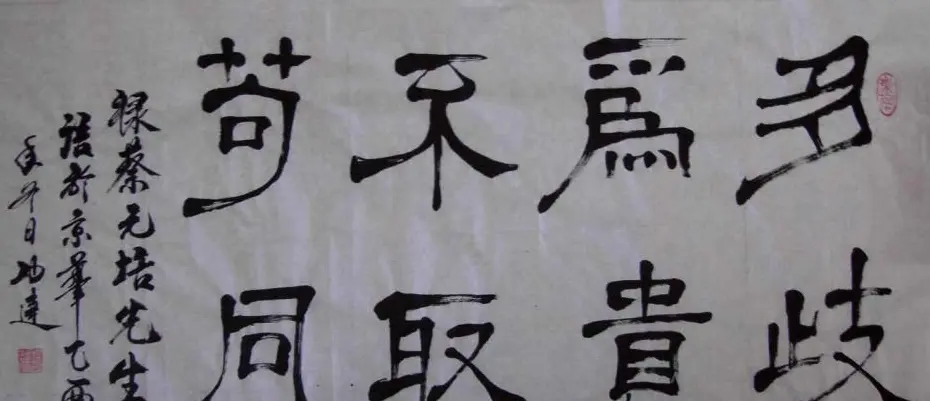 多歧
為貴
不取
苟同
録蔡元培先生
語於京華乙酉
年冬日